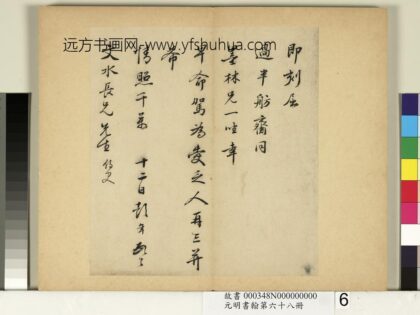 远方书画网-www.yfshuhua.com
即刻屈
過半舫齋同
墨林兄一吐幸
早命駕為愛之人再三并
希
情照千萬 十二日彭年
文水長兄先生
故書 000348N000000000
元明書翰第六十八冊
6